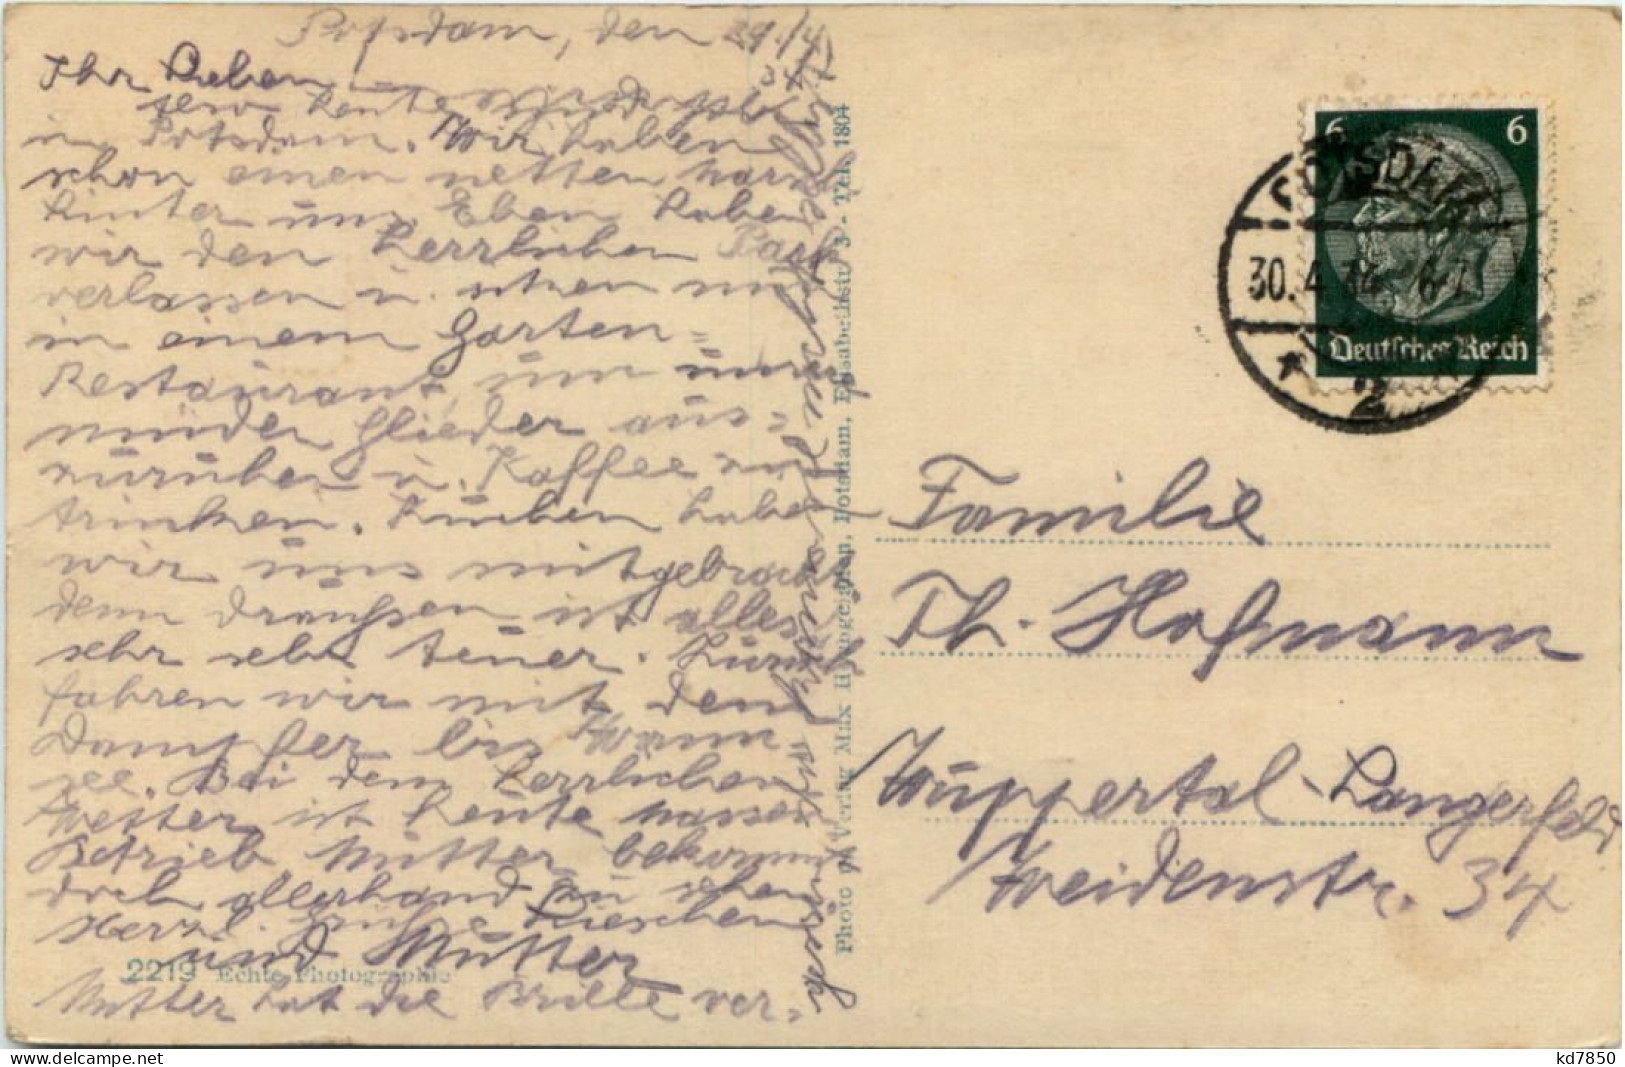 Potsdam, den 29./4.
34
Ihr Lieben!
sen heute
in Potsdam. Wir haben
schon einen netten Marsch
hinter uns. Eben haben
wir den herrlichen Park
verlassen u. sitzen nun
in einem Garten-
Restaurant, um uns
unter Flieder aus-
zuruhen u. Kaffee zu
trinken. Kuchen haben
wir uns mitgebracht
denn draußen ist alles
sehr sehr teuer. Zurück
fahren wir mit dem
Dampfer bis Wann-
see. Bei dem herrlichen
Wetter ist heute Massen
Betrieb Mutter bekommt
doch allerhand zu sehen
Herzl. Grüße Lieschen
und Mutter
Mutter hat die Brille ver-
2219 Echte Photographie
Verlag Max Potsdam, Elisabethstr. 3 - Tel. 1804
6 6
POTSDAM
30.4.34 6-7
* 2
Deutsches Reich
Familie
Th. Hofmann
Wuppertal-Langerfeld
Weidenstr. 34
kd7850